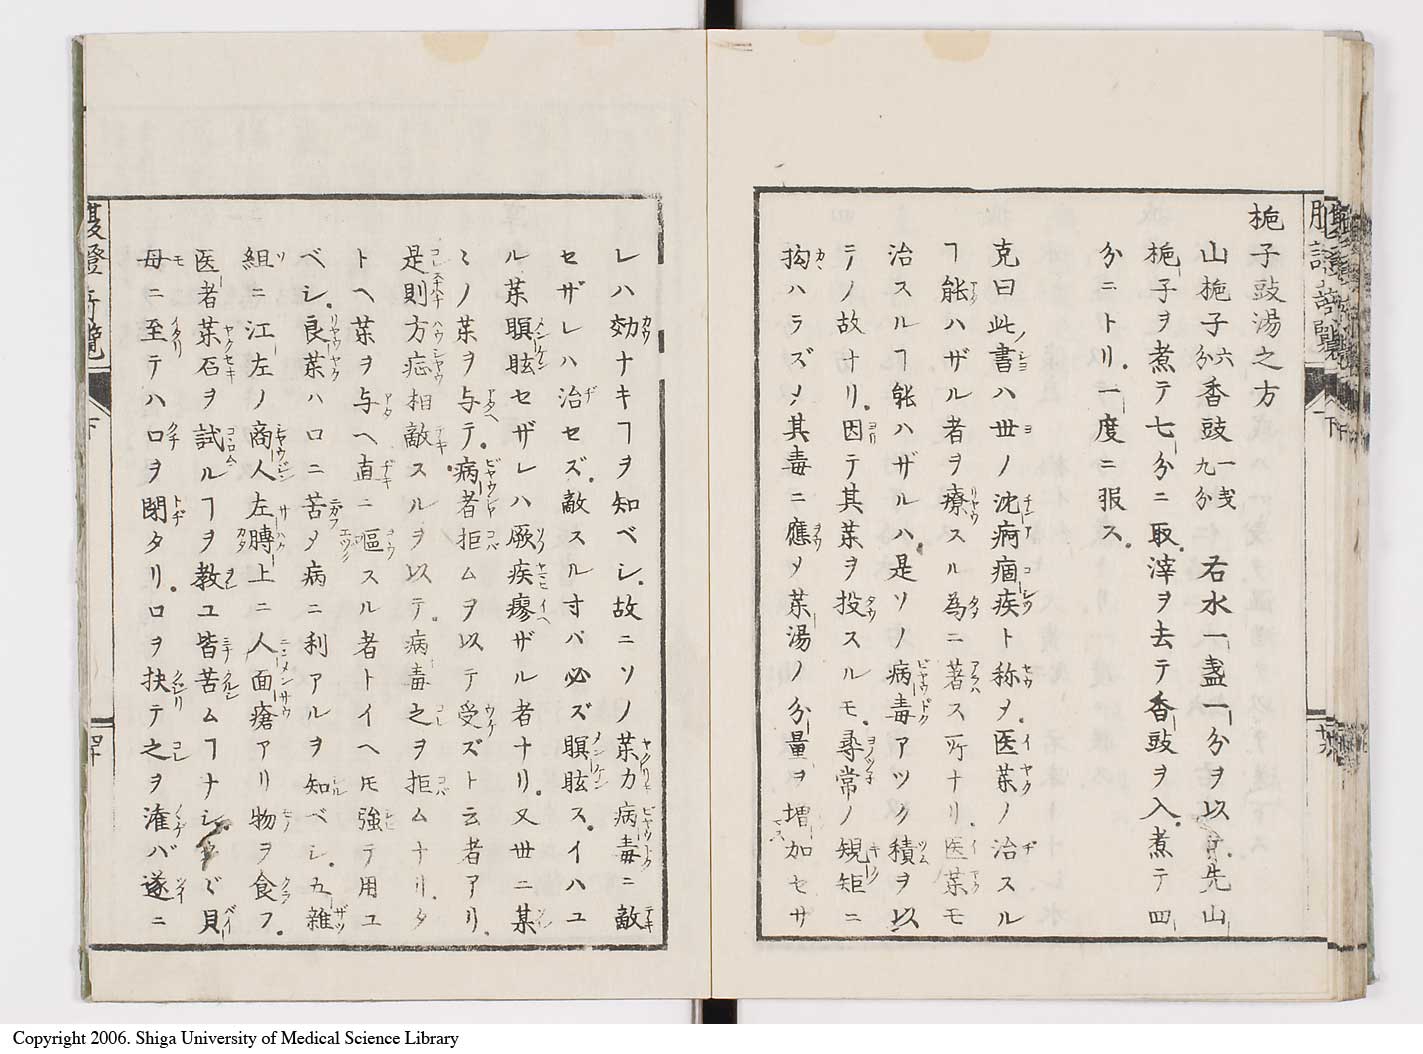 梔子豉湯之方
山梔子六分香豉一戔九分 右水一盞一分ヲ以 先山
梔子ヲ煮テ七分ニ取滓ヲ去テ香豉ヲ入煮テ四
分ニトリ一度ニ服ス
克曰此ノ書ハ世ノ沈痾痼疾ト称ヲ医薬ノ治スル
ヿ能ハザル者ヲ療スル為ニ著ス所ナリ医薬モ
治スルヿ能ハザルハ是ソノ病毒アツク積ヲ以
テノ故ナリ因テ其薬ヲ投スルモ尋常ノ規矩ニ
拘ハラズメ其毒ニ應メ薬湯ノ分量ヲ増加セサ
レハ効ナキヿヲ知ベシ故ニソノ薬力病毒ニ敵
セザレハ治セズ敵スル寸バ必ズ瞑眩スイハユ
ル薬瞑眩セザレハ厥疾瘳ザル者ナリ又世ニ某
〻ノ薬ヲ与テ病者拒ムヲ以テ受ズト云者アリ
是則方症相敵スルヲ以テ病毒之ヲ拒ムナリタ
トヘ薬ヲ与ヘ直ニ嘔スル者トイヘ𪜈強テ用ユ
ベシ良薬ハ口ニ苦メ病ニ利アルヲ知ベシ五雜
組ニ江左ノ商人左膊上ニ人面瘡アリ物ヲ食フ
医者薬石ヲ試ルヿヲ教ユ皆苦ムヿナシ 貝
母ニ至テハ口ヲ閉タリ口ヲ抉テ之ヲ潅バ遂ニ
下